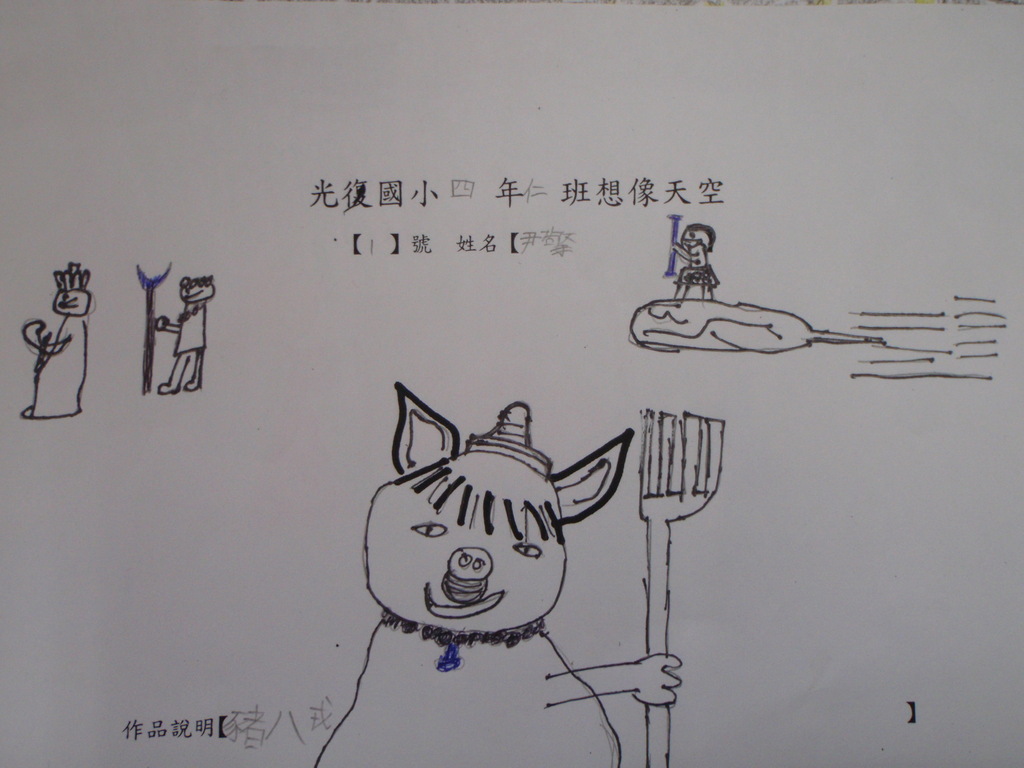 光復國小四年仁班想像天空
【1】號 姓名【尹擎
作品說明【豬八戒 】